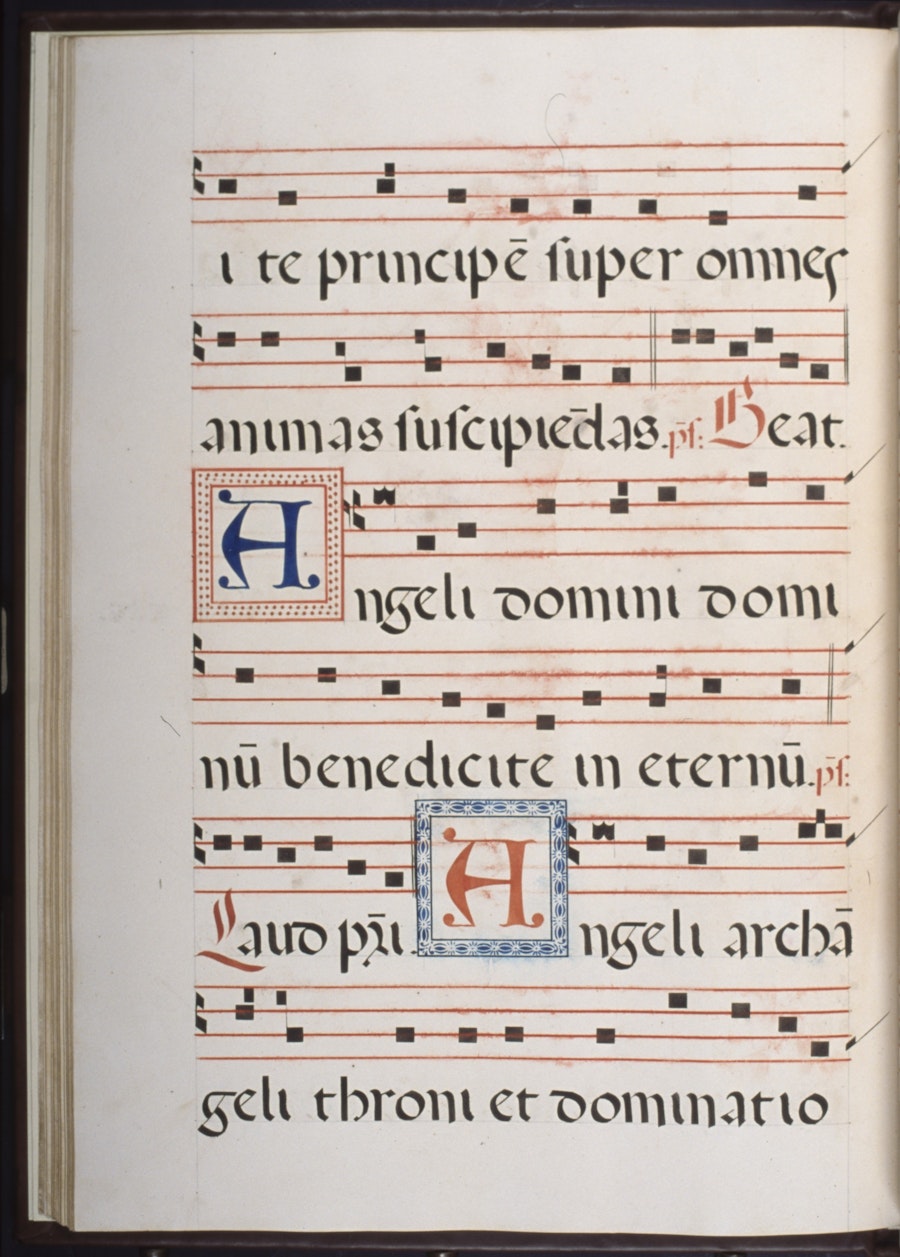 i te principē ſuper omnes
animas ſuſcipiēdas. p̄ſ: Beat.
Angeli domini domi
nū benedicite in eternū. p̄ſ:
Laud pr̄i. Angeli archā
geli throni et dominatio